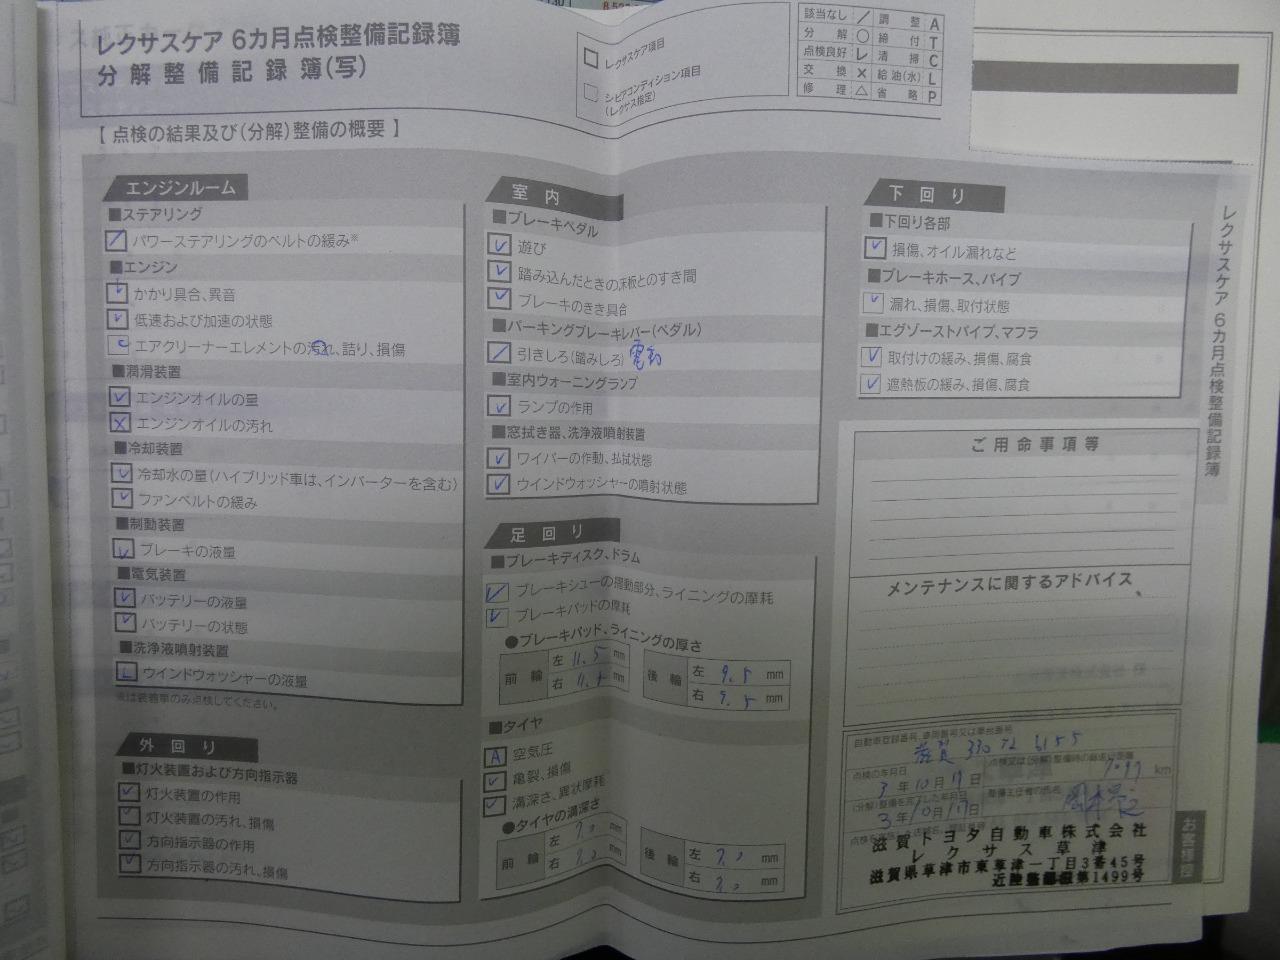 レクサスケア 6カ月点検整備記録簿
分解整備記録簿(写)
レクサスケア項目
シビアコンディション項目
(レクサス指定)
該当なし ／ 調整 A
分解 ○ 締付 T
点検良好 レ 清掃 C
交換 × 給油(水) L
修理 △ 省略 P
【 点検の結果及び(分解)整備の概要 】
エンジンルーム
■ステアリング
パワーステアリングのベルトの緩み※
■エンジン
かかり具合、異音
低速および加速の状態
エアクリーナーエレメントの汚れ、詰り、損傷
■潤滑装置
エンジンオイルの量
エンジンオイルの汚れ
■冷却装置
冷却水の量(ハイブリッド車は、インバーターを含む)
ファンベルトの緩み
■制動装置
ブレーキの液量
■電気装置
バッテリーの液量
バッテリーの状態
■洗浄液噴射装置
L ウインドウォッシャーの液量
※は装着車のみ点検してください。
外回り
■灯火装置および方向指示器
灯火装置の作用
灯火装置の汚れ、損傷
方向指示器の作用
方向指示器の汚れ、損傷
室内
■ブレーキペダル
遊び
踏み込んだときの床板とのすき間
ブレーキのきき具合
■パーキングブレーキレバー(ペダル)
引きしろ(踏みしろ) 電動
■室内ウォーニングランプ
ランプの作用
■窓拭き器、洗浄液噴射装置
ワイパーの作動、払拭状態
ウインドウォッシャーの噴射状態
足回り
■ブレーキディスク、ドラム
ブレーキシューの摺動部分、ライニングの摩耗
ブレーキパッドの摩耗
●ブレーキパッド、ライニングの厚さ
前輪 左 11.5 mm 後輪 左 9.5 mm
右 mm 右 9.5 mm
■タイヤ
A 空気圧
亀裂、損傷
溝深さ、異状摩耗
●タイヤの溝深さ
前輪 左 7.0 mm 後輪 左 7.0 mm
右 7.0 mm 右 7.0 mm
下回り
■下回り各部
損傷、オイル漏れなど
■ブレーキホース、パイプ
漏れ、損傷、取付状態
■エグゾーストパイプ、マフラ
取付けの緩み、損傷、腐食
遮熱板の緩み、損傷、腐食
ご用命事項等
メンテナンスに関するアドバイス
自動車登録番号、車両番号又は車台番号
滋賀 330 6155
点検の年月日
3 年 10 月 17 日
点検又は(分解)整備時の総走行距離
km
(分解)整備を完了した年月日
3 年 10 月 17 日
整備主任者の氏名
滋賀トヨタ自動車株式会社
レクサス草津
滋賀県草津市東草津一丁目3番45号
第1499号
レクサスケア 6カ月点検整備記録簿
お客様控